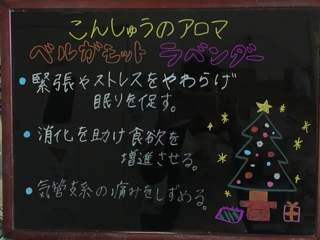 こんしゅうのアロマ
ベルガモット ラベンダー
緊張やストレスをやわらげ
眠りを促す。
消化を助け食欲を
増進させる。
気管支系の痛みをしずめる。